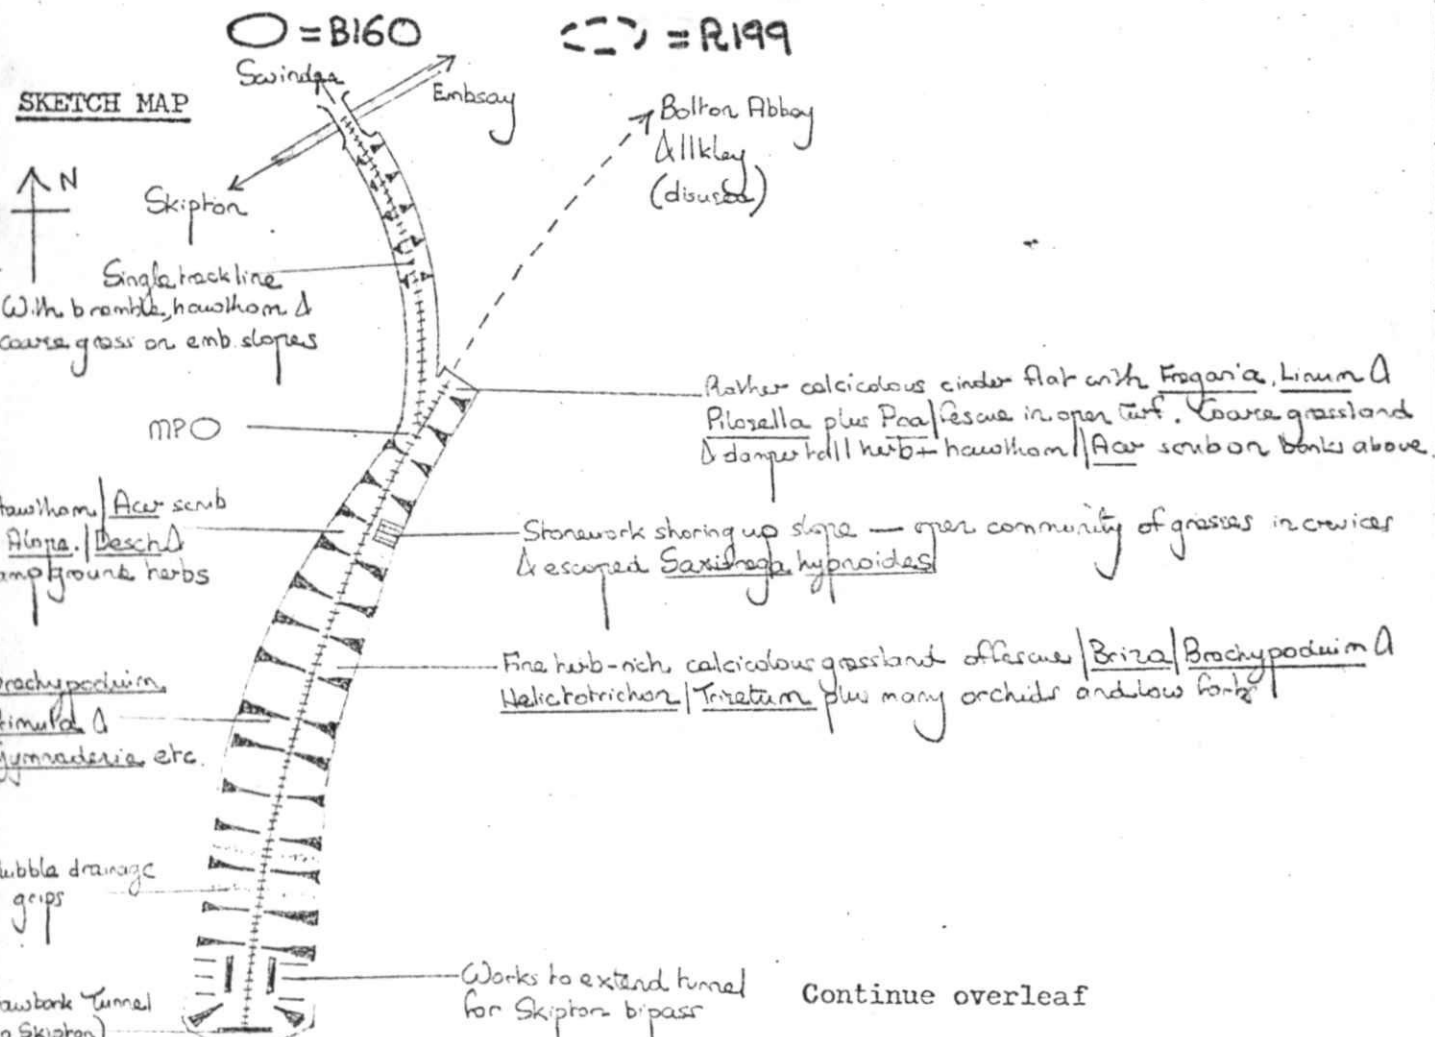 = B160
= R199
Swinden
SKETCH MAP
Embsay
Bolton Abbey
& Ilkley
(disused)
N
Skipton
Single track line
With bramble, hawthorn &
coarse grass on emb. slopes
MPO
Rather calcicolous cinder flat with Fragaria, Linum &
Pilosella plus Poa/fescue in open turf. Coarse grassland
& damper tall herb + hawthorn/Acer scrub on banks above.
Hawthorn/Acer scrub
Alope./Desch &
damp ground herbs
Stonework shoring up slope — open community of grasses in crevices
& escaped Saxifraga hypnoides
Fine herb-rich calcicolous grassland of fescue/Briza/Brachypoduim &
Helictotrichon/Trisetum plus many orchids and low forbs
Brachypoduim
Primula &
Gymnadenia etc.
Rubble drainage
grips
Works to extend tunnel
for Skipton bipass
Continue overleaf
Hawbank Tunnel
(to Skipton)